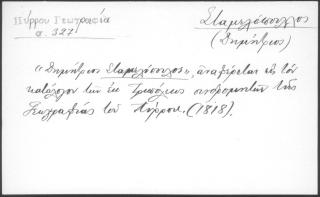 Πύρρου Γεωγραφία
σ. 327
Σταμελόπουλος
(Δημήτριος)
«Δημήτριος Σταμελόπουλος», ἀναφέρεται εἰς τὸν
κατάλογον τῶν ἐκ Τριπόλεως συνδρομητῶν τῆς
Γεωγραφίας τοῦ Πύρρου. (1818).